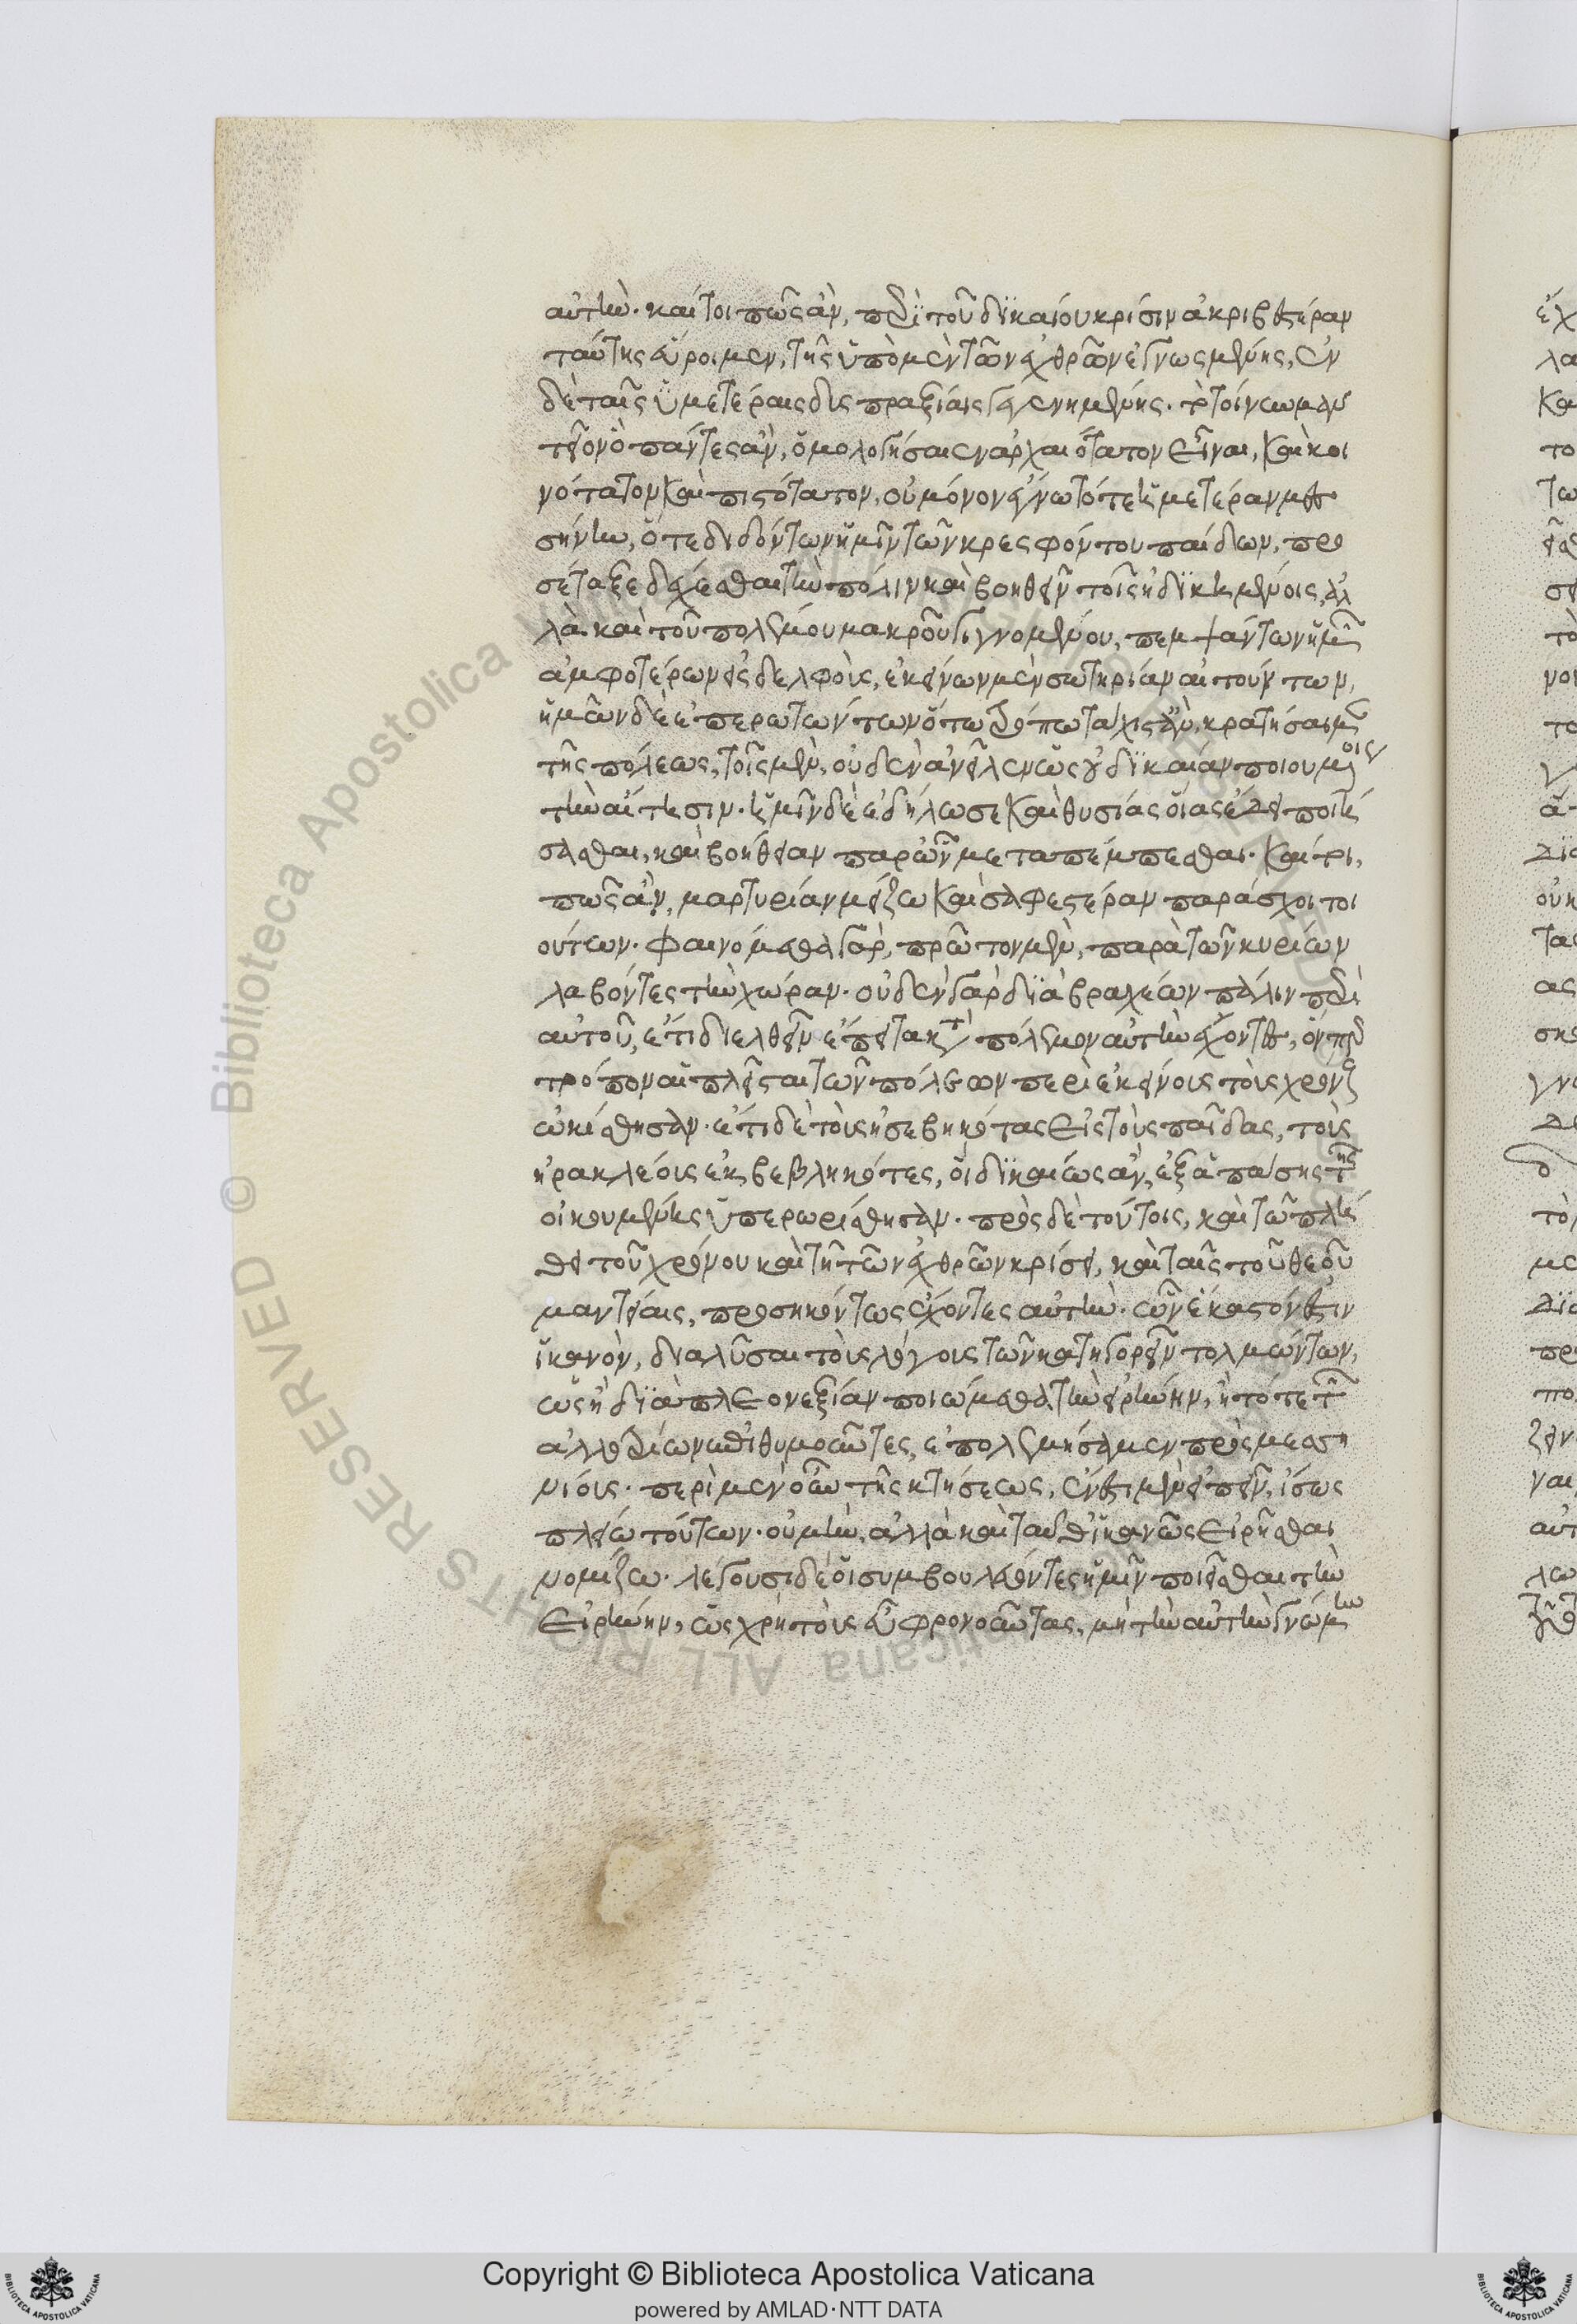 αὐτὴν· καί τοι πῶς ἂν, περὶ τοῦ δικαίου κρίσιν ἀκριβεστέραν
ταύτης εὕροιμεν, τῆς ὑπὸ μὲν τῶν ἐχθρῶν ἐγνωσμένης, ἐν
δὲ ταῖς ὑμετέραις δυσπραξίαις γεγενημένης. τὸ τοίνυν μαν
τεῖον ὃ πάντες ἂν, ὁμολογήσαιεν ἀρχαιότατον εἶναι, καὶ κοι
νότατον καὶ πιστότατον, οὐ μόνον ἔγνω τόθ' ἡμετέραν μεσ
σήνην, ὅτε διδόντων ἡμῖν τῶν κρεσφόντου παίδων, προ
σέταξε δέχεσθαι τὴν πόλιν καὶ βοηθεῖν τοῖς ἠδικημένοις, ἀλ
λὰ καὶ τοῦ πολέμου μακροῦ γιγνομένου, πεμψάντων ἡμῶν
ἀμφοτέρων εἰς δελφοὺς, ἐκείνων μὲν σωτηρίαν αἰτούντων,
ἡμῶν δὲ ἐπερωτώντων ὅτῳ τρόπῳ τάχιστ' ἂν, κρατήσαιμεν
τῆς πόλεως, τοῖς μὲν, οὐδὲν ἀνεῖλεν ὡς οὐ δικαίαν ποιουμένοις
τὴν αἴτησιν· ἡμῖν δὲ ἐδήλωσε καὶ θυσίας οἵας ἔδει ποιή
σασθαι, καὶ βοήθειαν παρ' ὧν μεταπέμπεσθαι. καί τοι,
πῶς ἂν, μαρτυρίαν μείζω καὶ σαφεστέραν παράσχοι τοι
ούτων. φαινόμεθα γὰρ, πρῶτον μὲν, παρὰ τῶν κυρίων
λαβόντες τὴν χώραν· οὐδὲν γὰρ διὰ βραχέων πάλιν περὶ
αὐτοῦ, ἔτι διελθεῖν ἔπειτα κατὰ πόλεμον αὐτὴν ἔχοντες, ὅνπερ
τρόπον αἱ πλεῖσται τῶν πόλεων περὶ ἐκείνους τοὺς χρόνους
ᾠκίσθησαν· ἔτι δὲ τοὺς ἠσεβηκότας εἰς τοὺς παῖδας, τοὺς
ἡρακλέους ἐκβεβληκότες, οἳ δικαίως ἂν, ἐξ ἁπάσης τῆς
οἰκουμένης ὑπερωρίσθησαν. πρὸς δὲ τούτοις, καὶ τῷ πλή
θει τοῦ χρόνου καὶ τῇ τῶν ἐχθρῶν κρίσει, καὶ ταῖς τοῦ θεοῦ
μαντείαις, προσηκόντως ἔχοντες αὐτὴν. ὧν ἓν ἕκαστόν ἐστιν
ἱκανὸν, διαλῦσαι τοὺς λόγους τῶν κατηγορεῖν τολμώντων,
ὡς ἢ διὰ πλεονεξίαν ποιούμεθα τὴν εἰρήνην, ἢ τότε τῶν
ἀλλοτρίων ἐπιθυμοῦντες, ἐπολεμήσαμεν πρὸς μεσση
νίους. περὶ μὲν οὖν τῆς κτήσεως, ἔνεστι μὲν εἰπεῖν, ἴσως
πλείω τούτων. οὐ μὴν, ἀλλὰ καὶ ταῦθ' ἱκανῶς εἰρῆσθαι
νομίζω. λέγουσι δὲ οἱ συμβουλεύοντες ἡμῖν ποιεῖσθαι τὴν
εἰρήνην, ὡς χρὴ τοὺς εὖ φρονοῦντας, μὴ τὴν αὐτὴν γνώμην
Copyright © Biblioteca Apostolica Vaticana
powered by AMLAD·NTT DATA